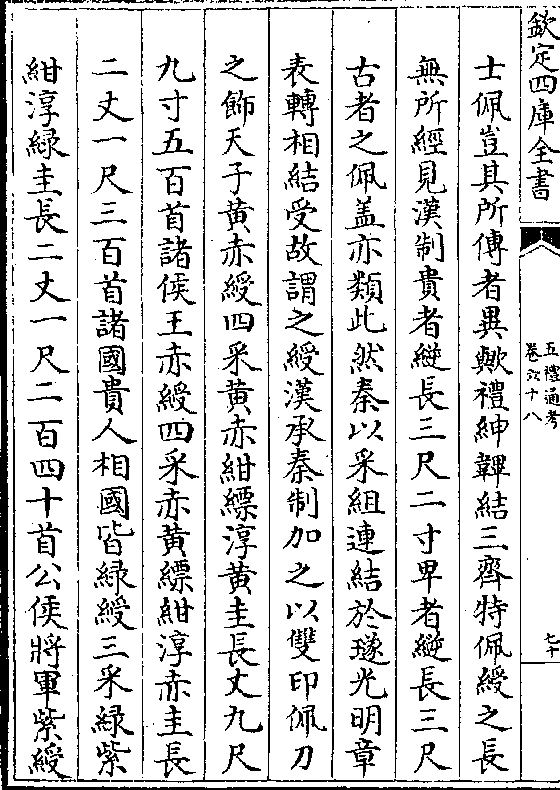 欽定四庫全書
五禮通考
卷六十八
七十
士佩豈其所傳者異歟禮紳韠結三齊特佩綬之長
無所經見漢制貴者縌長三尺二寸卑者縌長三尺
古者之佩盖亦類此然秦以采組連結於璲光明章
表轉相結受故謂之綬漢承秦制加之以雙印佩刀
之飾天子黄赤綬四采黄赤紺縹淳黄圭長丈九尺
九寸五百首諸侯王赤綬四采赤黄縹紺淳赤圭長
二丈一尺三百首諸國貴人相國皆緑綬三采緑紫
紺淳緑圭長二丈一尺二百四十首公侯將軍紫綬